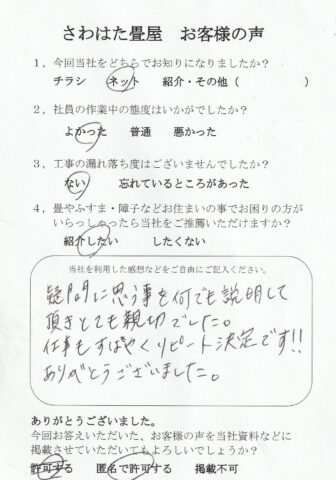 さわはた畳屋　お客様の声
１，今回当社をどちらでお知りになりましたか？
チラシ　ネット　紹介・その他（　　　　　）
２，社員の作業中の態度はいかがでしたか？
よかった　普通　悪かった
３，工事の漏れ落ち度はございませんでしたか？
ない　忘れているところがあった
４，畳やふすま・障子などお住まいの事でお困りの方が
いらっしゃったら当社をご推薦いただけますか？
紹介したい　したくない
当社を利用した感想などをご自由にご記入ください。
疑問に思う事を何でも説明して
頂きとても親切でした。
仕事もすばやくリピート決定です!!
ありがとうございました。
ありがとうございました。
今回お答えいただいた、お客様の声を当社資料などに
掲載させていただいてもよろしいでしょうか？
許可する　匿名で許可する　掲載不可